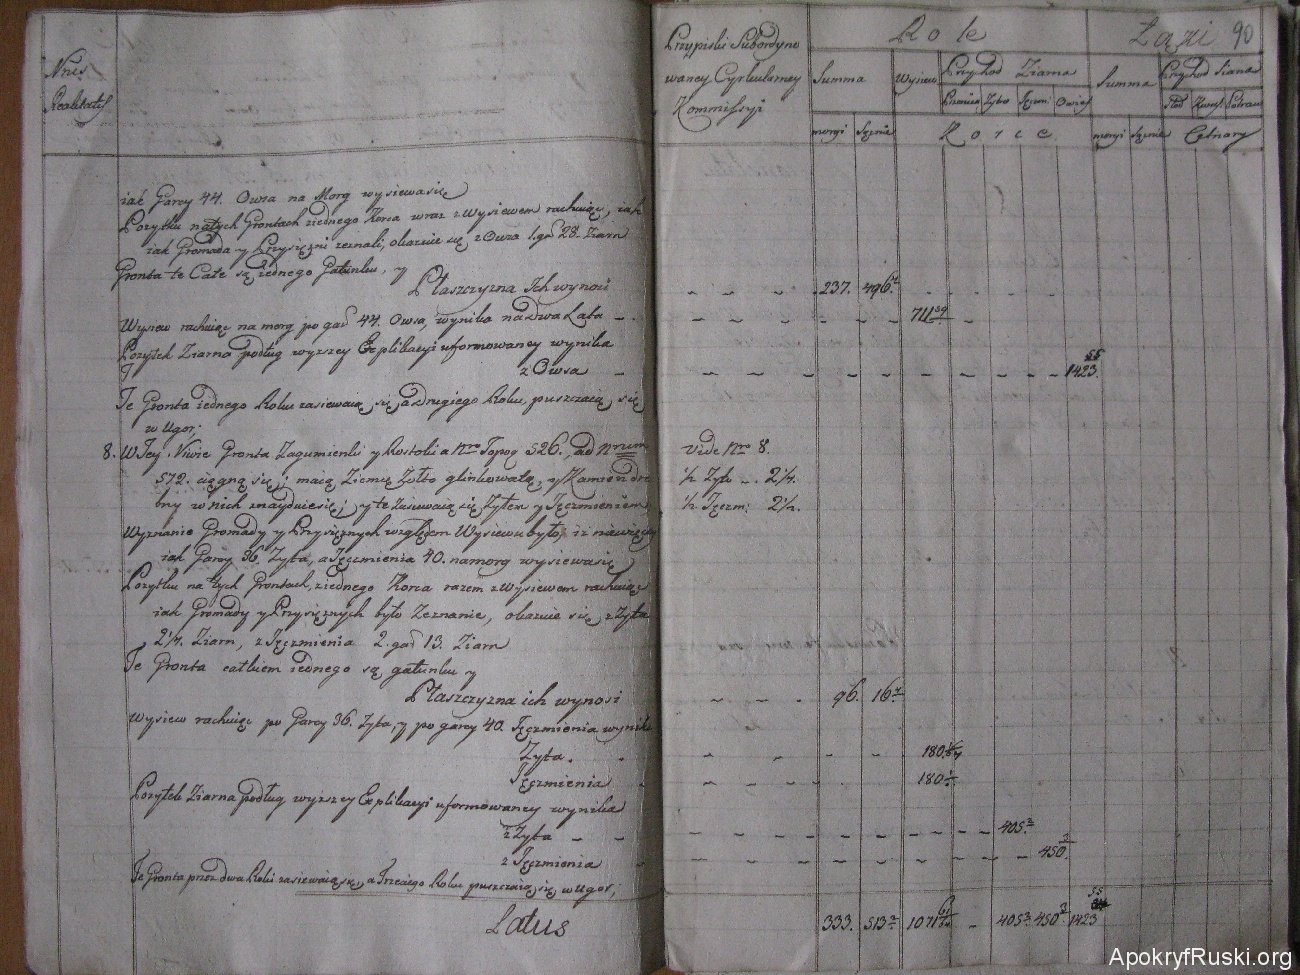 Nrus
Realitatis
iak Garcy 44. Owsa na Morg wysiewa się
Pozytku na tych Grontach z iednego Korca wraz z Wysiewem rachuiąc, iak
iak Gromada y Przysięzni zeznali, okazuie się z Owsa 1. gad 28. Ziarn
Gronta te Całe są iednego Gatunku, y
Płaszczyzna Ich wynosi
Wysiew rachuiąc na morg po gad 44. Owsa, wynika na dwa Lata
Pozytek Ziarna podług wyzszey Explikacyi uformowaney wynika
z Owsa
Te Gronta iednego Roku zasiewaią się, a drugiego Roku puszczaią się
w Ugor;
8. W Tey Niwie Gronta Zagumienki y Rostoki a Nro Topog 526., ad Nrum
572. ciągną się, maią Ziemię Zołto glinkowatą, y Kamien dro
bny w nich znayduie się, y te Zasiewaią się Zytem y Jęczmieniem
Wyznanie Gromady y Przysięznych względem Wysiewu było, iz niewięcey
iak Garcy 36. Zyta, a Jęczmienia 40. na morg wysiewa się
Pozytku na tych Grontach, z iednego Korca razem z Wysiewem rachuiąc
iak Gromady y Przysięznych było Zeznanie, okazuie się z Zyta
2 1/4. Ziarn, z Jęczmienia 2. gad 13. Ziarn
Te Gronta całkiem iednego są gatunku y
Płaszczyzna ich wynosi
Wysiew rachuiąc po Garcy 36. Zyta, y po garcy 40. Jęczmienia wynika
Zyta.
Jęczmienia
Pozytek Ziarna podług wyzszey Explikacyi uformowaney wynika
z Zyta
z Jęczmienia
Te Gronta przez dwa Roki zasiewaią się, a Trzeciego Roku puszczaią się w Ugor,
Latus
Przypiski Subordyno
waney Cyrkularney
Kommissyi
Role
Łąki 90
Summa
Wysiew
Przychod Ziarna
Summa
Przychod Siana
Pszenica Zyto Jęczm. Owies
morgi Sąznie
Korce
morgi Sąznie
Cetnary
237. 496.
711
1423.
vide Nro 8.
1/2 Zyto 2 1/4.
1/2 Jęczm: 2 1/2.
96. 16
180.
180
405
450.
333. 513 1071 405 450 1423
ApokryfRuski.org